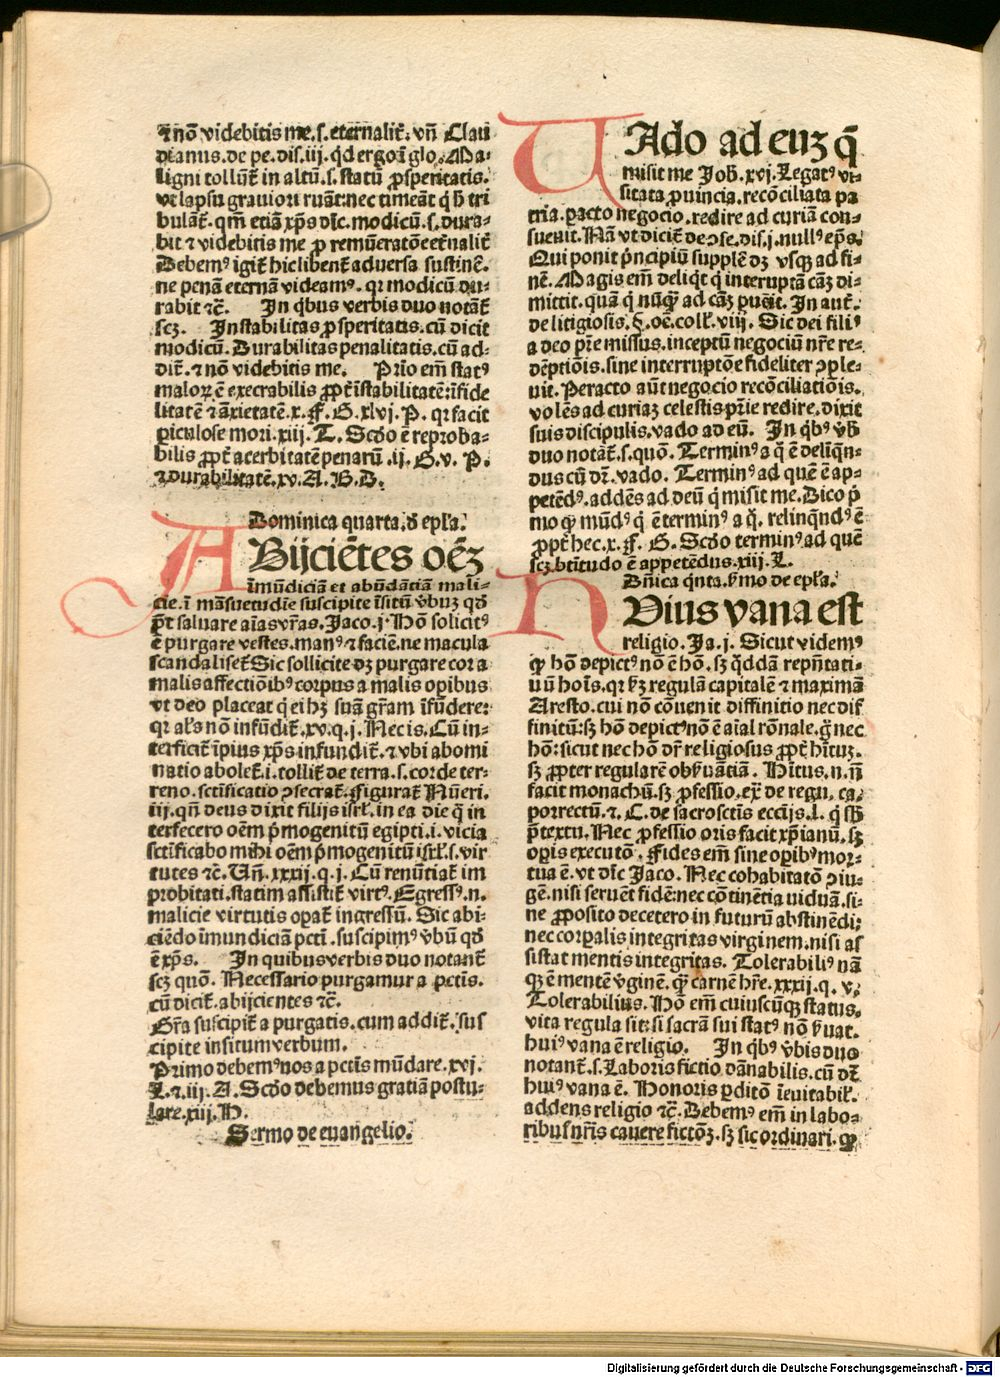 ⁊ nō videbitis me.s. eternalit̄. vn̄ Clau
dianus.de pe.dis.iij. qd̄ ergo ī glo. Ma-
ligni tollūt̄ in altū.s.statū ꝓsperitatis.
vt lapsu grauiori ruāt:nec timeāt q̄ h̄ tri
bulāt̄. qm̄ etiā xp̄s dīc. modicū.s.dura-
bit ⁊ videbitis me ꝓ remūeratōe et̄nalit̄
Debemꝰ igit̄ hic libent̄ aduersa sustinē.
ne penā eternā videamꝰ. qr modicū du-
rabit ⁊c̄. In q̄bus verbis duo notāt̄
scꝫ. Instabilitas ꝓsperitatis.cū dicit
modicū. Durabilitas penalitatis.cū ad-
dit̄. ⁊ nō videbitis me. Prīo em̄ statꝰ
malorꝝ ē execrabilis ꝓpt̄ īstabilitatē:īfide
litatē ⁊ āxietatē.x. ff. G. xlvj. P. qr facit
ꝑiculose mori.xiij. T. Scdo ē reproba-
bilis ꝓpt̄ acerbitatē penarū.ij. G. v. P.
⁊ durabilitatē.xv. A. B. D.
Dominica quarta.d̄ epl̄a.
ABijciētes oēꝫ
īmūdiciā et abūdātiā mali-
cie.ī māsuetudīe suscipite īsitū v̄buꝫ qd̄
p̄t saluare aīas vr̄as. Jaco.j. Hō solicitꝰ
ē purgare vestes.manꝰ ⁊ faciē.ne macula
scandaliset̄ Sic sollicite dꝫ purgare cor a
malis affectiōibꝰ corpus a malis oꝑibus
vt deo placeat q̄ ei hꝫ suā gr̄am īfūdere:
qr al̄s nō infūdit̄.xv.q.j. Nec is. Cū in-
terficit̄ īpius xp̄s infundit̄. ⁊ vbi abomi
natio abolet̄.i.tollit̄ de terra.s.corde ter-
reno.sc̄tificatio ↄsecrat̄. Figurat̄ Nūeri.
iij. qn̄ deus dixit filijs isrl̄.in ea die q̄ in
terfecero oēm p̄mogenitū egipti.i.vicia
sc̄tificabo mihi oēm p̄mogenitū isrl̄.s.vir
tutes ⁊c̄. Vn̄.xxxij.q.j. Cū renūtiat̄ im
probitati.statim assistit̄ virtꝰ. Egressꝰ.n.
malicie virtutis oꝑat̄ ingressū. Sic abi-
ciēdo īmundiciam pctī.suscipimꝰ v̄bū qd̄
ē xp̄s. In quibus verbis duo notant̄
scꝫ quō. Necessario purgamur a pctīs.
cū dicit̄.abijcientes ⁊c̄.
Gr̄a suscipit̄ a purgatis.cum addit̄.sus
cipite insitum verbum.
Primo debemꝰ nos a pctīs mūdare.xvj.
L. ⁊ iij. A. Scdo debemus gratiā postu-
lare.xiij. H.
Sermo de euangelio.
VAdo ad euꝫ q̄
misit me Joh̄.xvj. Legatꝰ vi-
sitata ꝓuincia.recōciliata pa
tria.pacto negocio.redire ad curiā con-
sueuit. Nā vt dicit̄ de ↄse.dis.j.nullꝰ ep̄s.
Qui ponit p̄ncipiū supplē dꝫ vsqꝫ ad fi-
nē. Magis em̄ delīq̄t q̄ interuptā cāꝫ di-
mittit.quā q̄ nūq̄ꝫ ad cāꝫ ꝓuēit. In aut̄.
de litigiosis.§.oē.coll̄.viii. Sic dei filiꝰ
a deo pr̄e missus.inceptū negociū nr̄e re-
dēptiōis.sine interruptōe fideliter ↄple-
uit. Peracto aūt negocio recōciliatiōis.
volēs ad curiaꝫ celestis pr̄ie redire.dixit
suis discipulis.vado ad eū. In q̄bꝰ v̄b̄
duo notāt̄.s.quō. Terminꝰ a q̄ ē delīqn̄-
dus cū dr̄.vado. Terminꝰ ad quē ē ap-
petēdꝰ.addēs ad deū q̄ misit me. Dico p̄
mo ꝙ mūdꝰ q̄ ē terminꝰ a q̄. relinqn̄dꝰ ē
ꝓpt̄ hec.x. ff. G. Scdo terminꝰ ad quē
scꝫ btītudo ē appetēdus.xiij. L.
Dn̄ica q̄nta.s̄mo de epl̄a.
NVius vana est
religio. Ja.j. Sicut videmꝰ
ꝙ hō depictꝰ nō ē hō.sꝫ q̄ddā rep̄ntati-
uū hoīs.qr s̄ꝫ regulā capitalē ⁊ maximā
Aresto.cui nō cōuenit diffinitio nec dif
finitū:sꝫ hō depictꝰ nō ē aīal rōnale.g̊ nec
hō:sicut nec hō dr̄ religiosus ꝓpt̄ hītuꝫ.
sꝫ ꝓpter regularē obs̄uātiā. Hītus.n.n̄
facit monachū.sꝫ ꝓfessio.ex̄ de regu.ca.
porrectū.⁊. C. de sacrosctīs ecctijs.l. q̄ sb̄
p̄textu. Nec ꝓfessio oris facit xp̄ianū.sꝫ
oꝑis executō. Fides em̄ sine oꝑibꝰ mor-
tua ē.vt dīc Jaco. Nec cohabitatō ↄiu-
gē.nisi seruēt fidē:nec cōtinētia uiduā.si-
ne ꝓposito decetero in futurū abstinēdi:
nec corꝑalis integritas virginem.nisi as
sistat mentis integritas. Tolerabiliꝰ nā
qꝫ ē mentē v̄ginē. q̄ꝫ carnē hr̄e.xxxij.q.v.
Tolerabilius. Hō em̄ cuiuscūqꝫ status.
vita regula sit:si sacrā sui statꝰ nō s̄uat.
huiꝰ vana ē religio. In q̄bꝰ v̄bis duo
notant̄.s. Laboris fictio dānabilis.cū dr̄
huiꝰ vana ē. Honoris ꝑditō īeuitabil̄.
addens religio ⁊c̄. Debemꝰ em̄ in labo-
ribus nr̄is cauere fictōꝫ.sꝫ sic ordinari.ꝙ
Digitalisierung gefördert durch die Deutsche Forschungsgemeinschaft - DFG